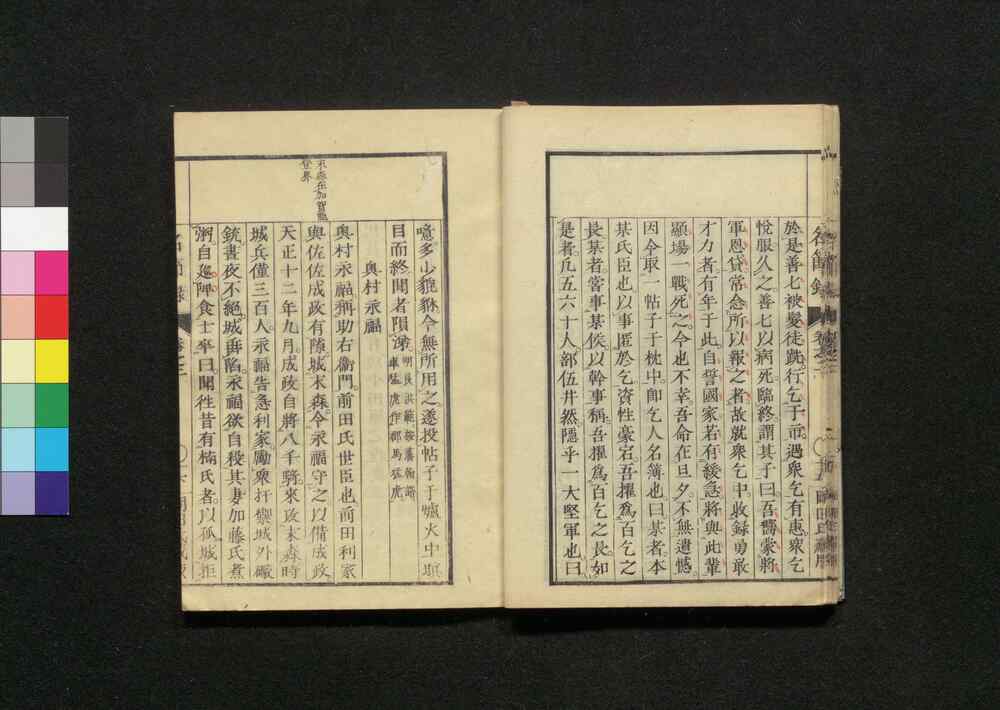 於是善七被髮徒跣行乞于市遇衆乞有惠衆乞
悅服久之善七以病死臨終謂其子曰吾嘗蒙將
軍恩貸常念所以報之者故就衆乞中收錄勇敢
才力者有年于此自誓國家若有緩急將與此輩
顯場一戰死之今也不幸吾命在旦夕不無遺憾
因令取一帖子于枕中即乞人名簿也曰某者本
某氏臣也以事匿於乞資性豪宕吾擢爲百乞之
長某者嘗事某侯以幹事稱吾擢爲百乞之長如
是者凡五六十人部伍井然隱乎一大堅軍也曰
噫多少貔貅今無所用之遂投帖子于爐火中瞋
目而終聞者隕涕
奧村永福
奧村永福稱助右衞門前田氏世臣也前田利家
與佐佐成政有隙城末森令永福守之以備成政
天正十二年九月成政自將八千騎來攻末森時
城兵僅三百人永福告急利家勵衆扞禦城外礮
銃晝夜不絕城垂陷永福欲自殺其妻加藤氏煮
粥自巡陴食士卒曰聞往昔有楠氏者以孤城拒